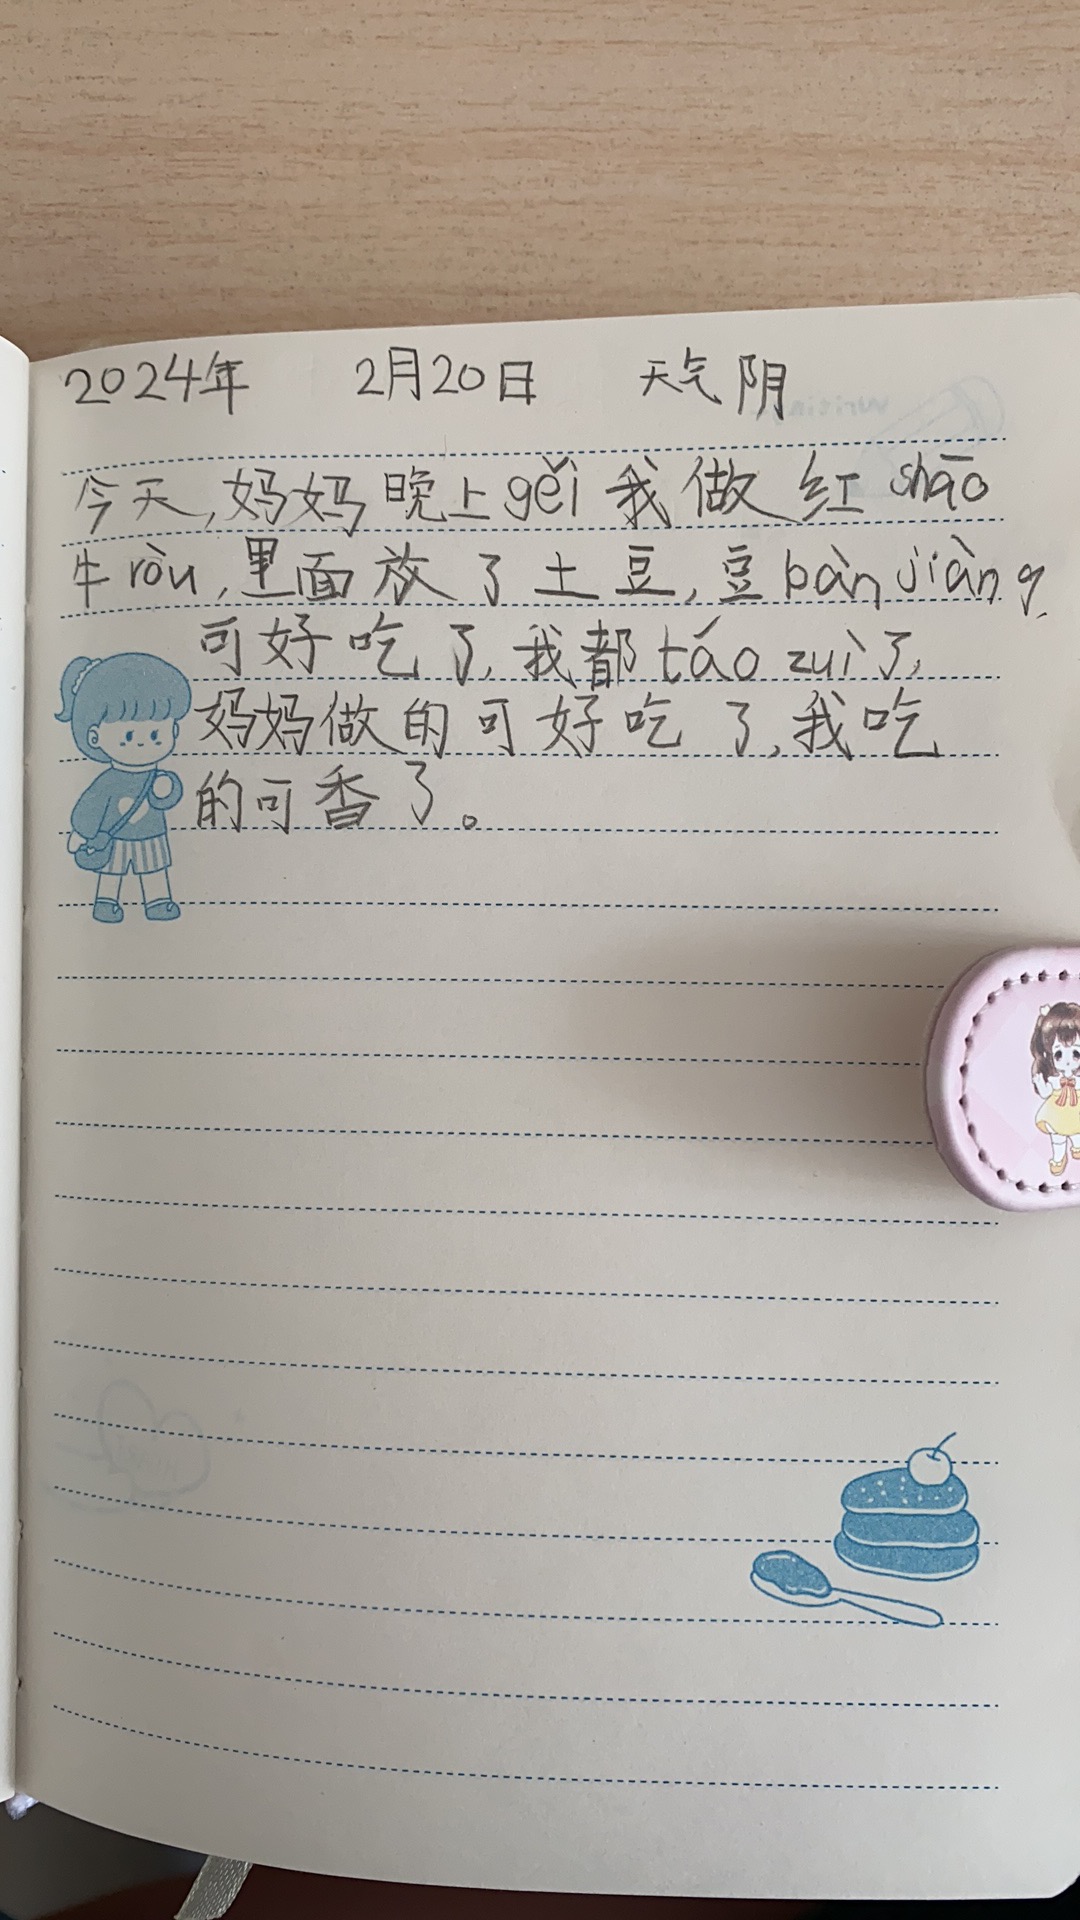 2024年 2月20日 天气阴
今天,妈妈晚上gěi我做红shāo
牛ròu,里面放了土豆,豆bànjiàng,
可好吃了,我都táo zuì了,
妈妈做的可好吃了,我吃
的可香了。